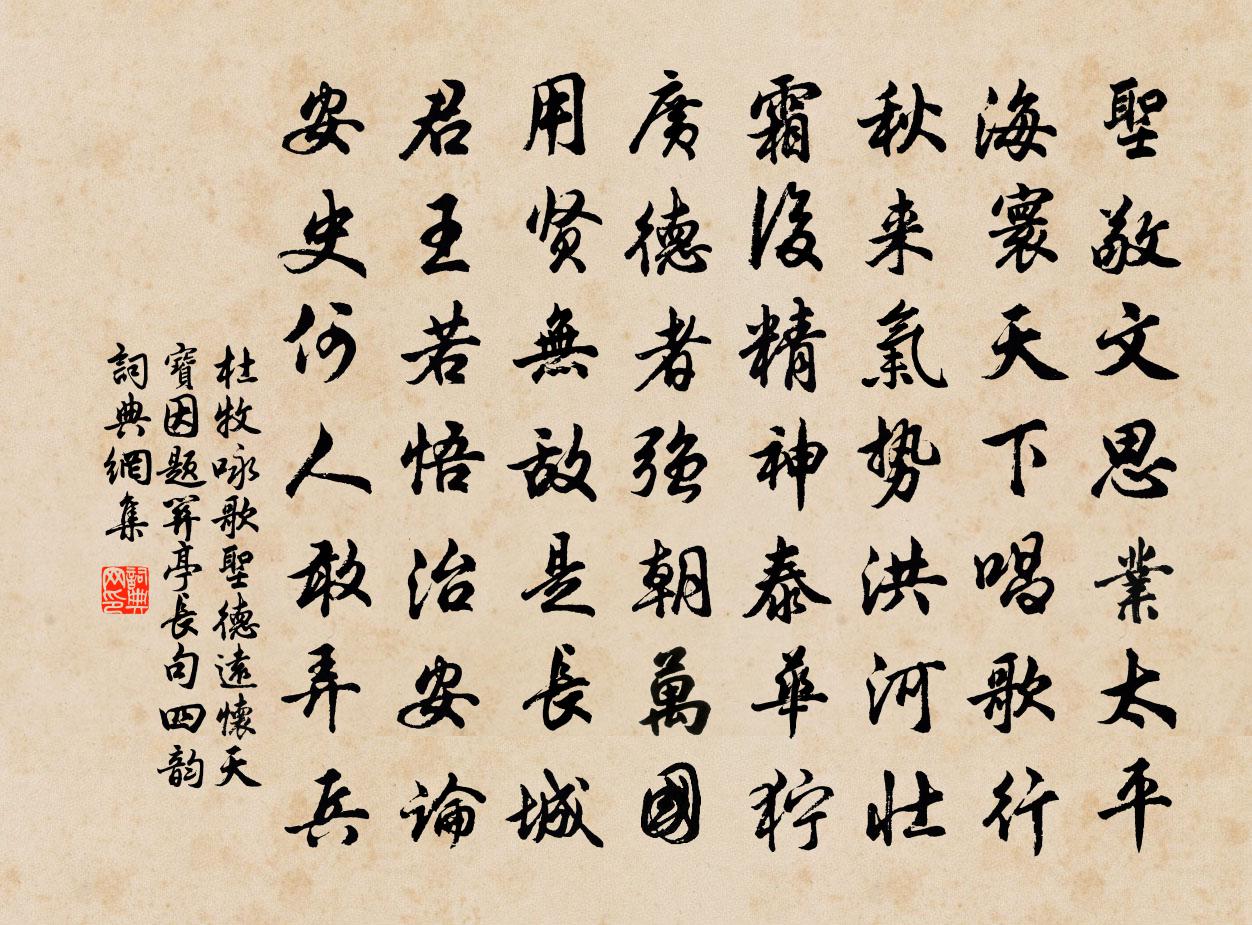 聖敬文思業太平
海寰天下唱歌行
秋来氣勢洪河壮
霜後精神泰華狞
廣德者強朝萬國
用贤無敌是長城
君王若悟治安論
安史何人敢弄兵
杜牧咏歌聖德遠懷天
寶因题関亭長句四韵
詞典網集
詞典网印